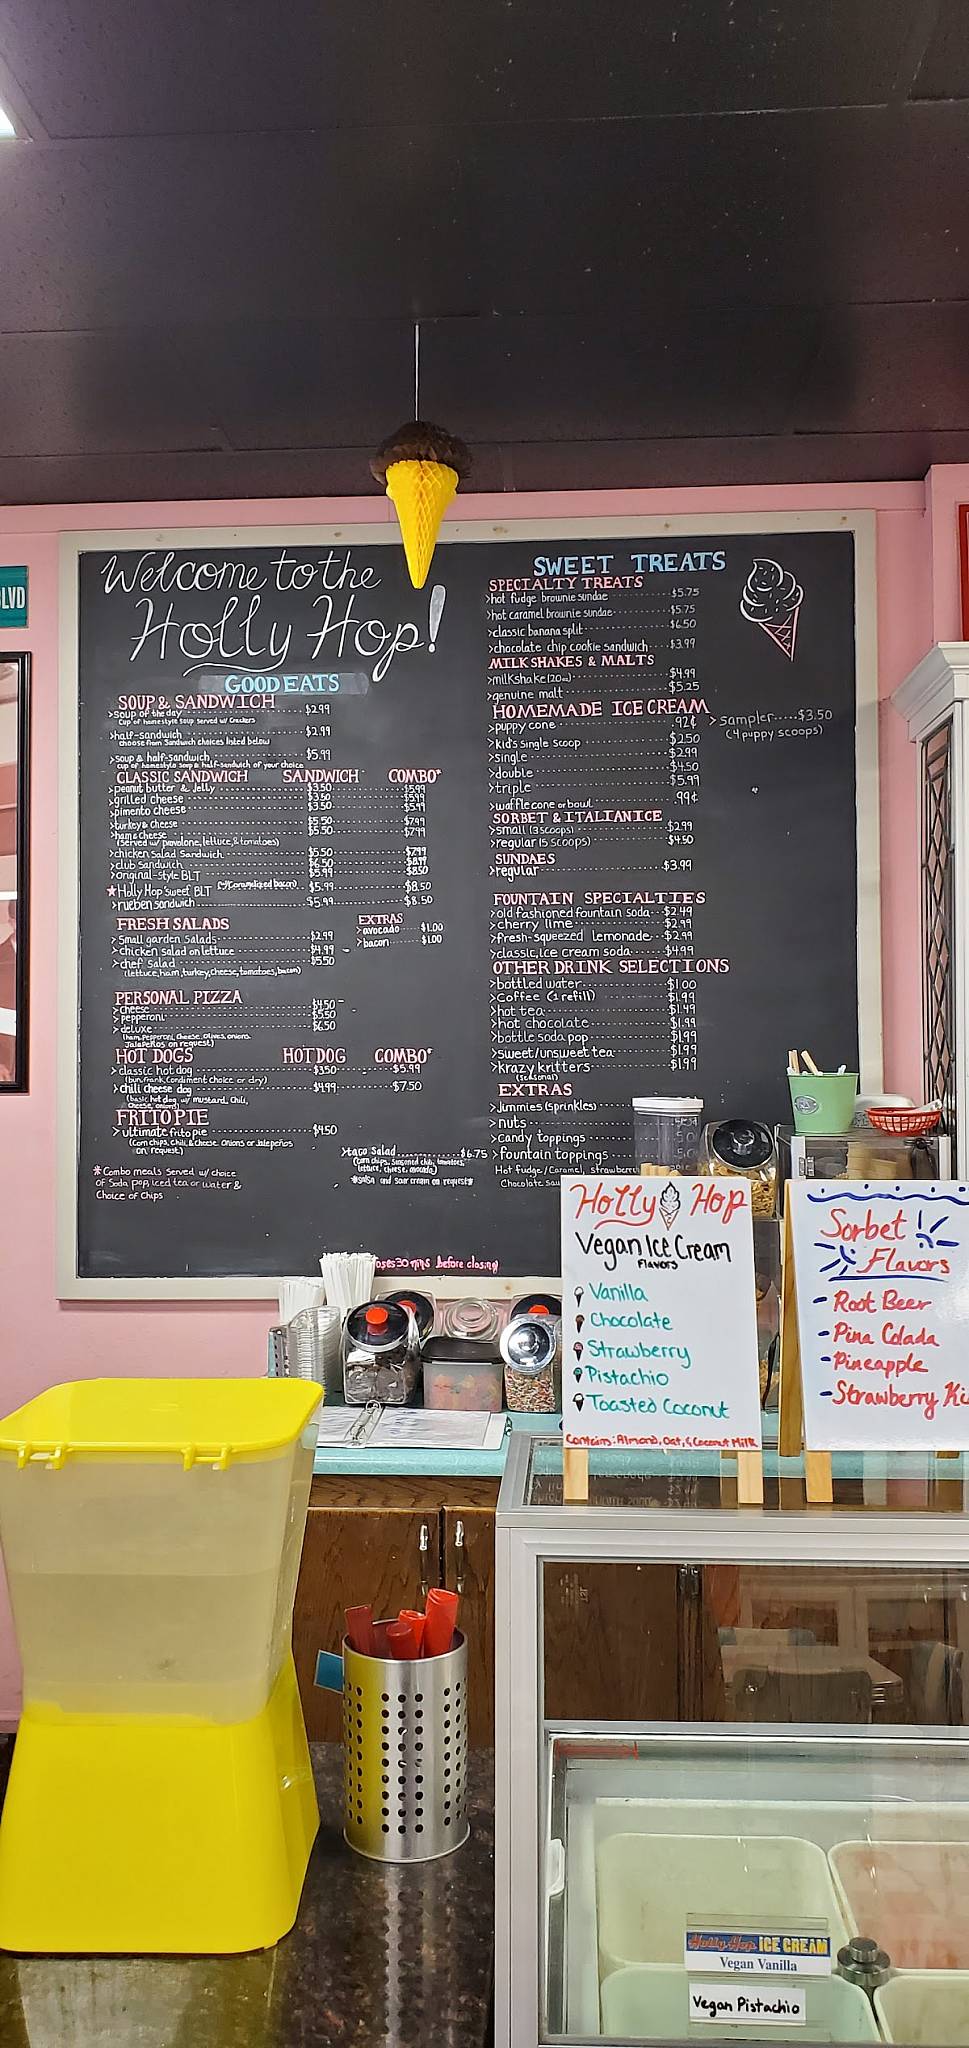 BLVD
Welcome to the
Holly Hop!
GOOD EATS
SOUP & SANDWICH
>soup of the day $2.99
cup of homestyle soup served w/ crackers
>half-sandwich $2.99
choose from sandwich choices listed below
>soup & half-sandwich $5.99
cup of homestyle soup & half-sandwich of your choice
CLASSIC SANDWICH SANDWICH COMBO*
>peanut butter & Jelly $3.50 $5.99
>grilled cheese $3.50 $5.99
>pimento cheese $3.50 $5.99
>turkey & cheese $5.50 $7.99
>ham & cheese $5.50 $7.99
(served w/ provolone, lettuce, & tomatoes)
>chicken salad sandwich $5.50 $7.99
>club sandwich $6.50 $8.99
>original-style BLT $5.99 $8.50
★Holly Hop "sweet" BLT (w/caramelized bacon) $5.99 $8.50
>rueben sandwich $5.99 $8.50
FRESH SALADS
>small garden salads $2.99
>chicken salad on lettuce $4.99
>chef salad $5.50
(lettuce, ham, turkey, cheese, tomatoes, bacon)
EXTRAS
>avocado $1.00
>bacon $1.00
PERSONAL PIZZA
>cheese $4.50
>pepperoni $5.50
>deluxe $6.50
(ham, pepperoni, cheese, olives, onions
Jalapeños on request)
HOT DOGS HOT DOG COMBO*
>classic hot dog $3.50 $5.99
(bun, frank, condiment choice or dry)
>chili cheese dog $4.99 $7.50
(basic hot dog w/ mustard, chili,
cheese, onions)
FRITO PIE
>ultimate frito pie $4.50
(corn chips, chili, & cheese. Onions or Jalepeños
on request)
>taco Salad $6.75
(corn chips, seasoned chili, tomatoes,
lettuce, cheese, avocado)
*salsa and sour cream on request*
*Combo meals served w/ choice
of Soda pop, iced tea or water &
Choice of Chips
oses 30 mins before closing
SWEET TREATS
SPECIALTY TREATS
>hot fudge brownie sundae $5.75
>hot caramel brownie sundae $5.75
>classic banana split $6.50
>chocolate chip cookie sandwich $3.99
MILKSHAKES & MALTS
>milkshake (20oz) $4.99
>genuine malt $5.25
HOMEMADE ICE CREAM
>puppy cone .92¢
>kid's single scoop $2.50
>single $2.99
>double $4.50
>triple $5.99
>waffle cone or bowl .99¢
>sampler $3.50
(4 puppy scoops)
SORBET & ITALIAN ICE
>small (3 scoops) $2.99
>regular (5 scoops) $4.50
SUNDAES
>regular $3.99
FOUNTAIN SPECIALTIES
>old fashioned fountain soda $2.49
>cherry lime $2.99
>fresh-squeezed lemonade $2.99
>classic ice cream soda $4.99
OTHER DRINK SELECTIONS
>bottled water $1.00
>Coffee (1 refill) $1.99
>hot tea $1.49
>hot chocolate $1.99
>bottle soda pop $1.99
>sweet/unsweet tea $1.99
>krazy kritters $1.99
(seasonal)
EXTRAS
>Jimmies (sprinkles)
>nuts
>candy toppings
>fountain toppings
Hot fudge/Caramel, strawberry
Chocolate
Holly Hop
Vegan Ice Cream
FLAVORS
Vanilla
Chocolate
Strawberry
Pistachio
Toasted Coconut
Contains: Almond, Oat, & Coconut Milk
Sorbet
Flavors
- Root Beer
- Pina Colada
- Pineapple
- Strawberry Ki
Holly Hop ICE CREAM
Vegan Vanilla
Vegan Pistachio